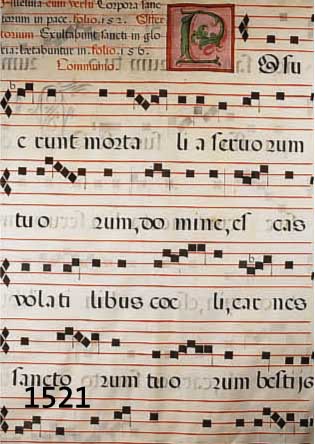 Alleluia cum versu Corpora sanc
torum in pace. folio. 152. Offer
torium Exultabunt sancti in glo
ria: letabuntur in. folio. 156.
Communio.
Posu
e runt morta li a seruo rum
tu o rum, do mine, es cas
volati libus coe li, car nes
sancto rum tu o rum bestijs
1521